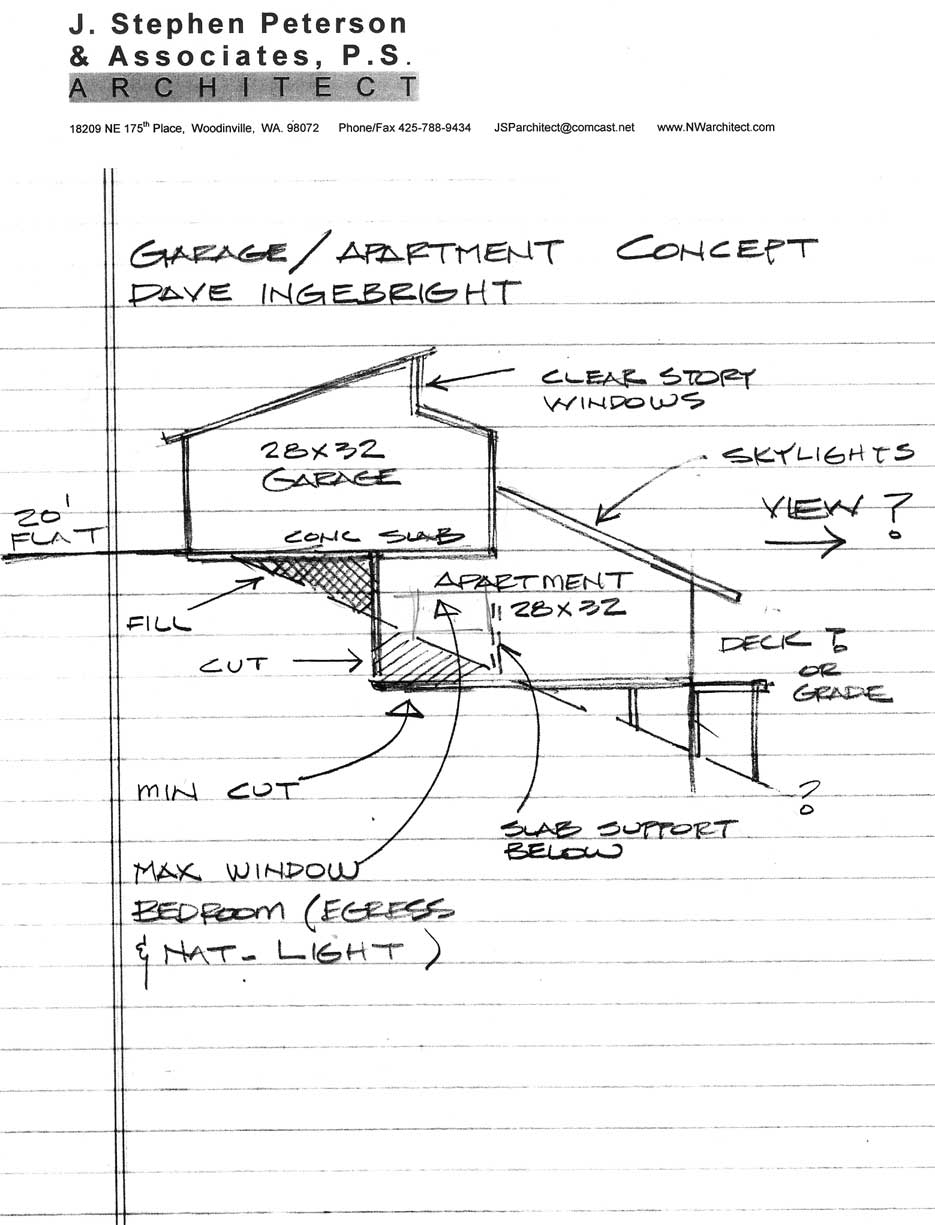 J. Stephen Peterson
& Associates, P.S.
ARCHITECT
18209 NE 175th Place, Woodinville, WA. 98072 Phone/Fax 425-788-9434 JSParchitect@comcast.net www.NWarchitect.com
GARAGE/APARTMENT CONCEPT
DAVE INGEBRIGHT
CLEAR STORY
WINDOWS
28X32
GARAGE
SKYLIGHTS
VIEW ?
20'
FLAT
CONC SLAB
APARTMENT
28X32
FILL
CUT
DECK ?
OR
GRADE
MIN CUT
?
SLAB SUPPORT
BELOW
MAX WINDOW
BEDROOM (EGRESS
& NAT. LIGHT)